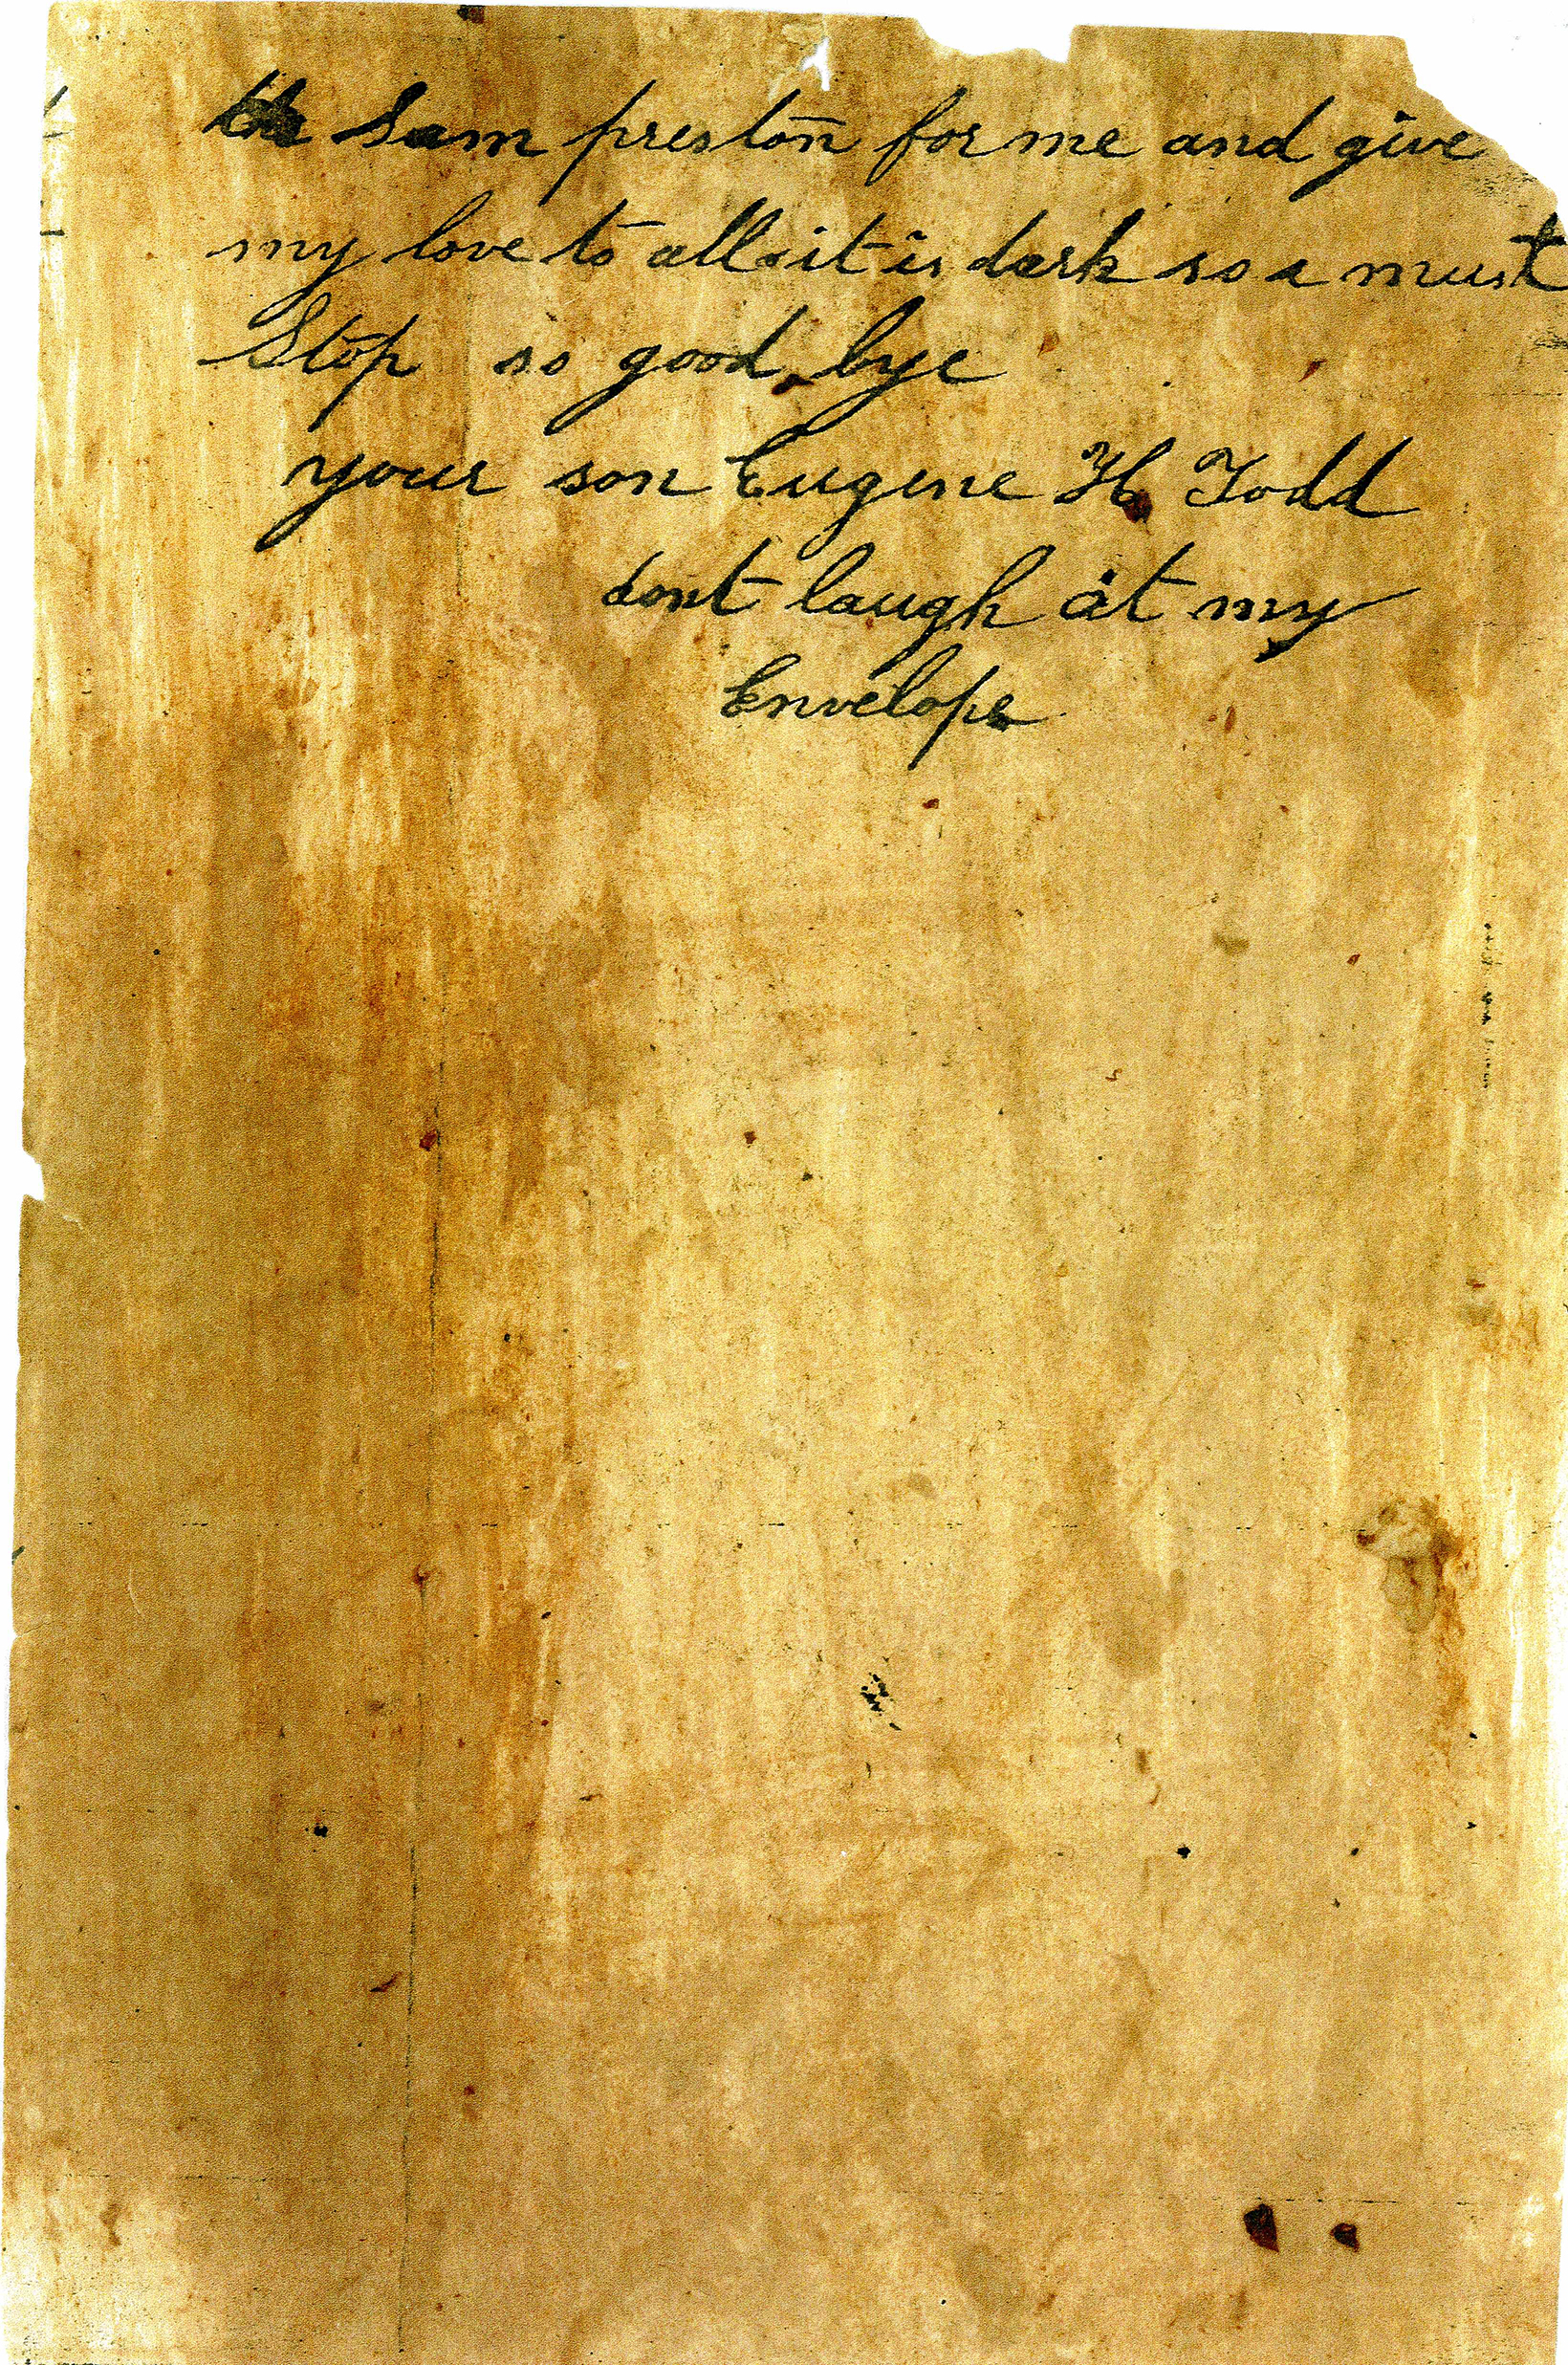 Sam preston for me and give
my love to all it is dark so a must
Stop so good bye
your son Eugene H Todd
dont laugh at my
Envelope